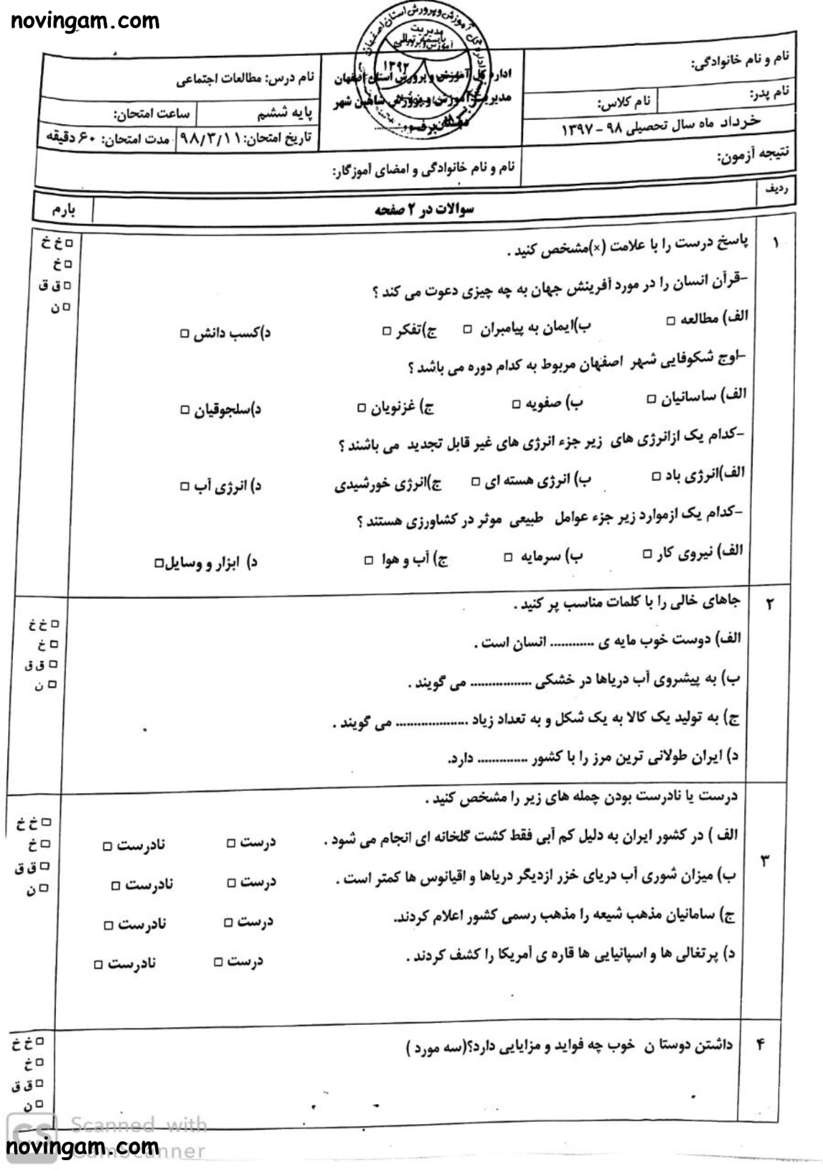 novingam.com
نام و نام خانوادگی:
نام پدر:
نام کلاس:
خرداد ماه سال تحصیلی ۹۸ - ۱۳۹۷
نتیجه آزمون:
اداره کل آموزش و پرورش استان اصفهان
مدیریت آموزش و پرورش شاهین شهر
نام و نام خانوادگی و امضای آموزگار:
نام درس: مطالعات اجتماعی
پایه ششم
ساعت امتحان:
تاریخ امتحان: ۹۸/۳/۱۱
مدت امتحان: ۶۰ دقیقه
ردیف
سوالات در ۲ صفحه
بارم
۱
پاسخ درست را با علامت (×)مشخص کنید .
-قرآن انسان را در مورد آفرینش جهان به چه چیزی دعوت می کند ؟
الف) مطالعه □ ب)ایمان به پیامبران □ ج)تفکر □ د)کسب دانش □
-اوج شکوفایی شهر اصفهان مربوط به کدام دوره می باشد ؟
الف) ساسانیان □ ب) صفویه □ ج) غزنویان □ د)سلجوقیان □
-کدام یک ازانرژی های زیر جزء انرژی های غیر قابل تجدید می باشند ؟
الف)انرژی باد □ ب) انرژی هسته ای □ ج)انرژی خورشیدی د) انرژی آب □
-کدام یک ازموارد زیر جزء عوامل طبیعی موثر در کشاورزی هستند ؟
الف) نیروی کار □ ب) سرمایه □ ج) آب و هوا □ د) ابزار و وسایل□
□ خ خ
□ خ
□ ق ق
□ ن
۲
جاهای خالی را با کلمات مناسب پر کنید .
الف) دوست خوب مایه ی ............ انسان است .
ب) به پیشروی آب دریاها در خشکی ................. می گویند .
ج) به تولید یک کالا به یک شکل و به تعداد زیاد .................... می گویند .
د) ایران طولانی ترین مرز را با کشور .............. دارد.
□ خ خ
□ خ
□ ق ق
□ ن
۳
درست یا نادرست بودن چمله های زیر را مشخص کنید .
الف ) در کشور ایران به دلیل کم آبی فقط کشت گلخانه ای انجام می شود . درست □ نادرست □
ب) میزان شوری آب دریای خزر ازدیگر دریاها و اقیانوس ها کمتر است . درست □ نادرست □
ج) سامانیان مذهب شیعه را مذهب رسمی کشور اعلام کردند. درست □ نادرست □
د) پرتغالی ها و اسپانیایی ها قاره ی آمریکا را کشف کردند . درست □ نادرست □
□ خ خ
□ خ
□ ق ق
□ ن
۴
داشتن دوستا ن خوب چه فواید و مزایایی دارد؟(سه مورد )
□ خ خ
□ خ
□ ق ق
□ ن
CS
Scanned with
CamScanner
novingam.com